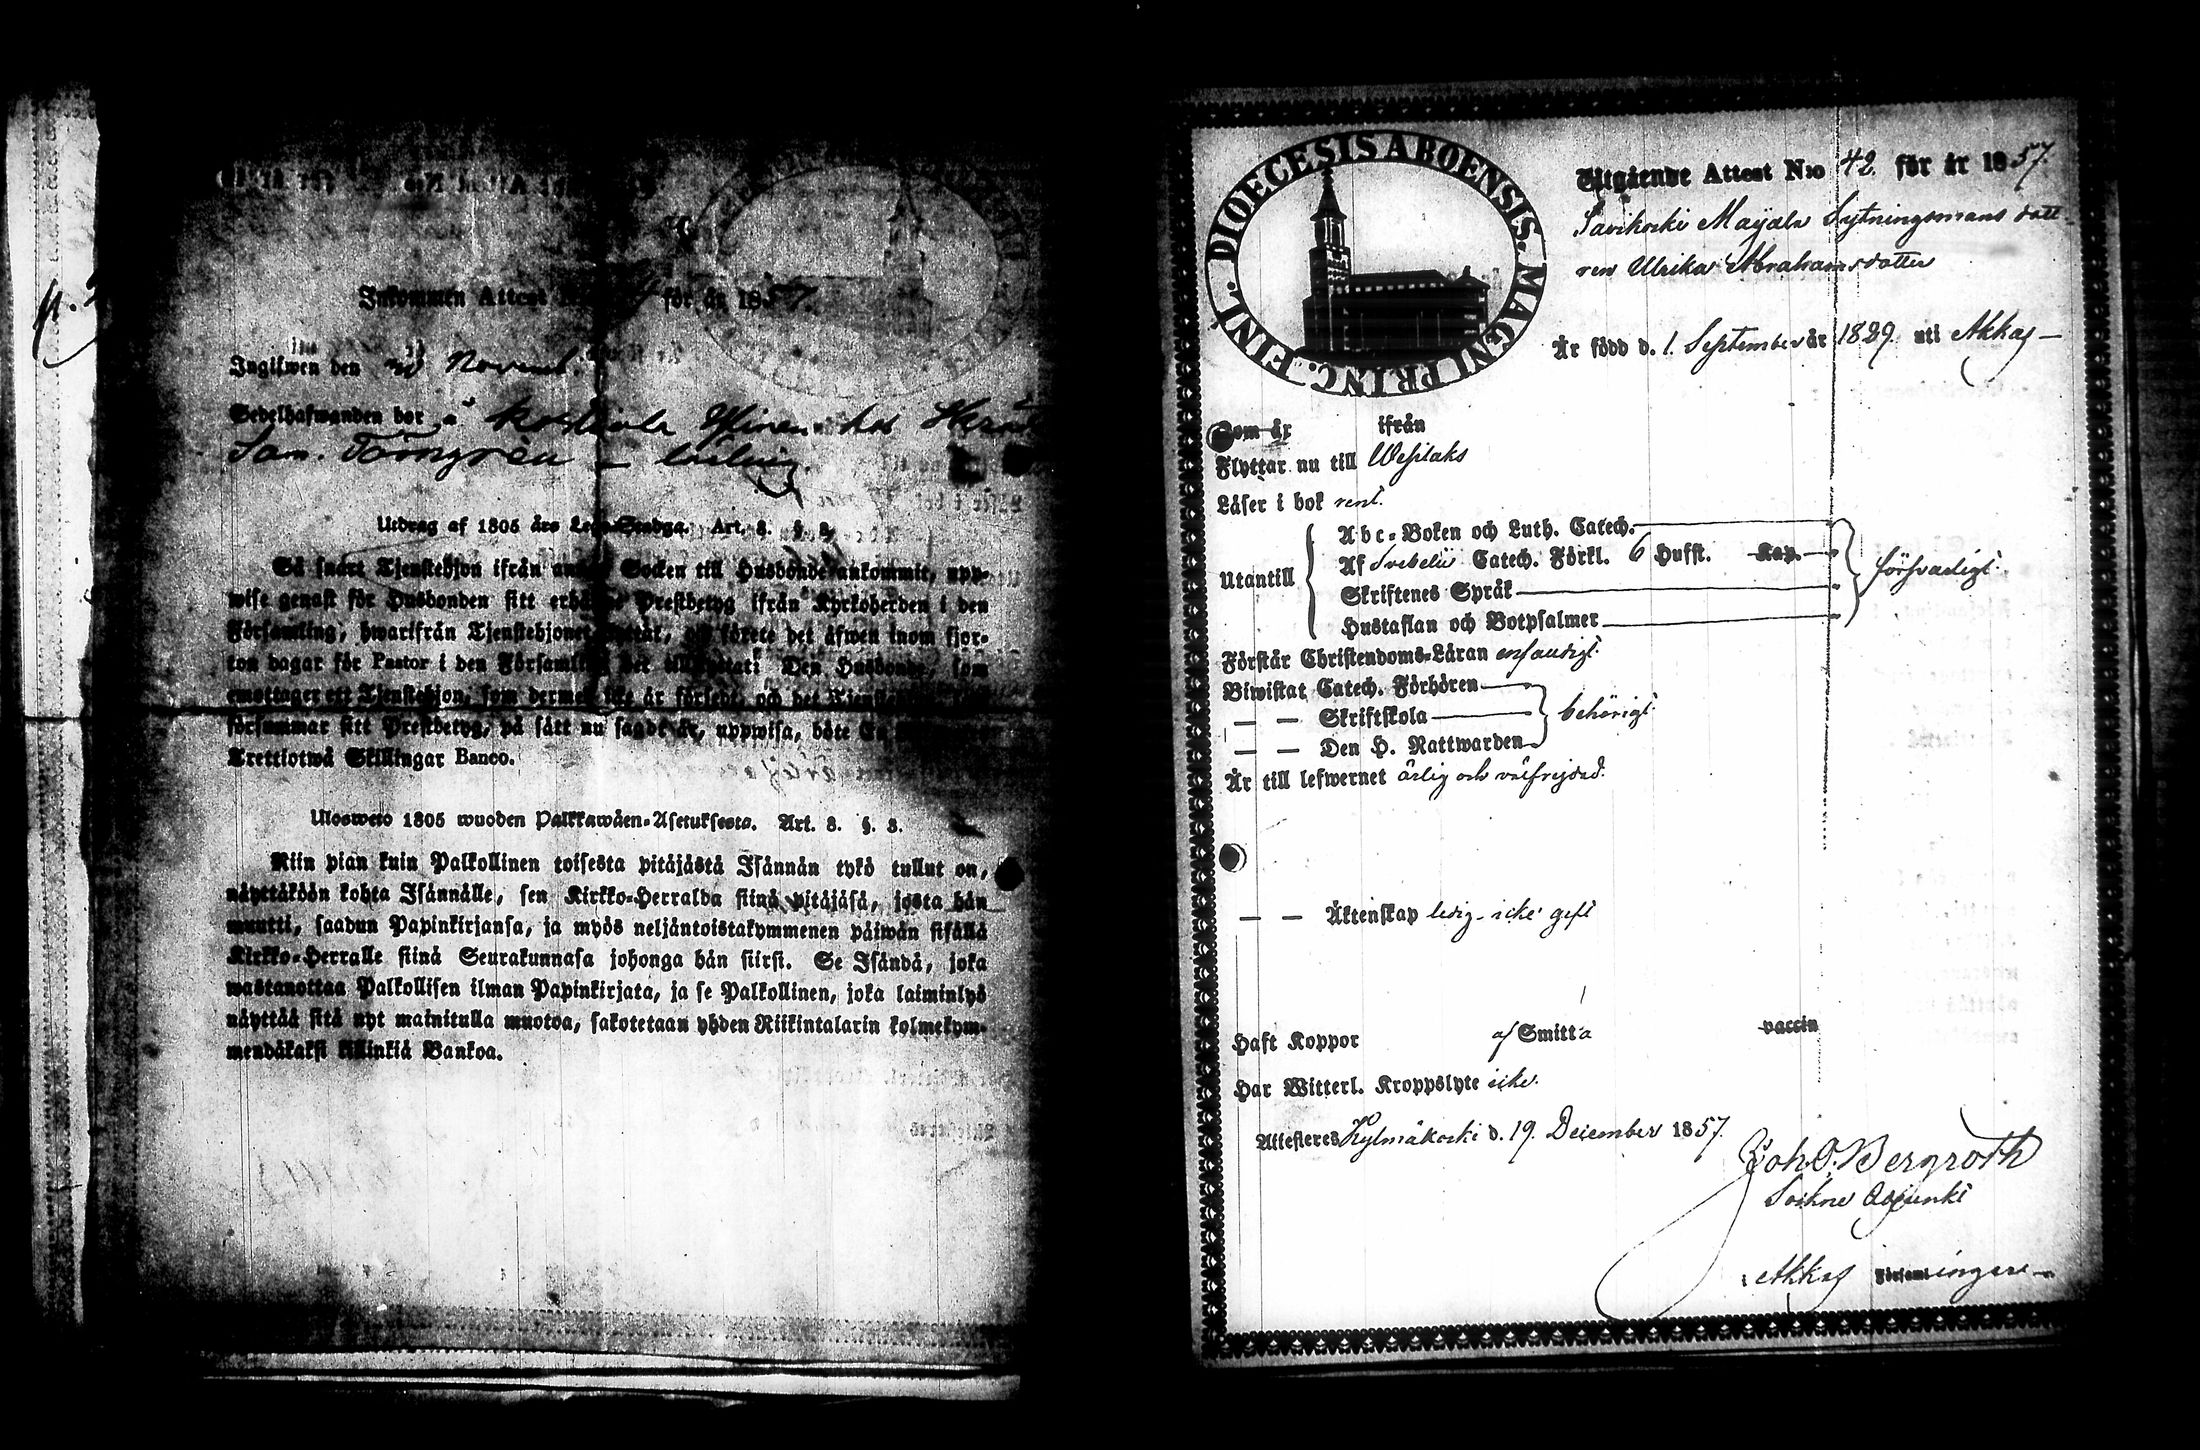 Inkommen Attest för år 1857.
Ingifwen den Novemb.
Sedelhafwanden bor å hos
Sam. Törngrén —
Utdrag af 1805 års Lego-Stadga. Art. 8. §. 8.
Så snart Tjenstehjon ifrån annan Socken till Husbonde ankommit, upp-
wise genast för Husbonden sitt erhållne Prestbetyg ifrån Kyrkoherden i den
Församling, hwarifrån Tjenstehjonet flyttat, och förete det åfwen inom fjor-
ton dagar för Pastor i den Församling det tillflyttat: Den Husbonde, som
emottager ett Tjenstehjon, som dermed icke år försedt, och det Tjenstehjon
försummar sitt Prestbetyg, på sått nu sagdt år, uppwisa, böte En
Trettiotwå Skillingar Banco.
Ulosweto 1805 wuoden Palkkawåen-Asetuksesta. Art. 8. §. 8.
Niin pian kuin Palkollinen toisesta pitåjåstå Isånnån tykö tullut on,
nåyttåköön kohta Isånnålle, sen Kirkko-Herralda siinå pitåjåså, josta hån
muutti, saadun Papinkirjansa, ja myös neljåntoistakymmenen påiwån sisållå
Kirkko-Herralle siinå Seurakunnasa johonga hån siirsi. Se Isåndå, joka
wastanottaa Palkollisen ilman Papinkirjata, ja se Palkollinen, joka laiminlyö
nåyttåå sitå nyt mainitulla muotoa, sakotetaan yhden Riikintalarin kolmekym-
mendåkaksi killinkiå Bankoa.
DIOECESIS ABOENSIS. MAGNI PRINC. FINL.
Utgående Attest N:o 42. för år 1857.
Savikoski Mayala Sytningsmans dott
ren Ulrika Abrahamsdotter
Är född d. 1. September år 1829. uti Akkas —
Som är ifrån
Flyttar nu till Wesilaks
Läser i bok rent.
Utantill
Abc-Boken och Luth. Catech.
Af Svebelii Catech. Förkl. 6 Hufst. Kap.
Skriftenes Språk
Hustaflan och Botpsalmer
försvarligt.
Förstår Christendoms-Läran enfaldigt.
Biwistat Catech. Förhören
— — Skriftskola
— — Den H. Nattwarden
behörigt.
Är till lefwernet ärlig och välfrejdad.
— — Äktenskap ledig - icke gift
Haft Koppor af Smitta vaccin
Har Witterl. Kroppslyte icke.
Attesteres Kylmäkoski d. 19. December 1857.
Joh. O. Bergroth
Sockne Adjunkt
i Akkas Församlingar —